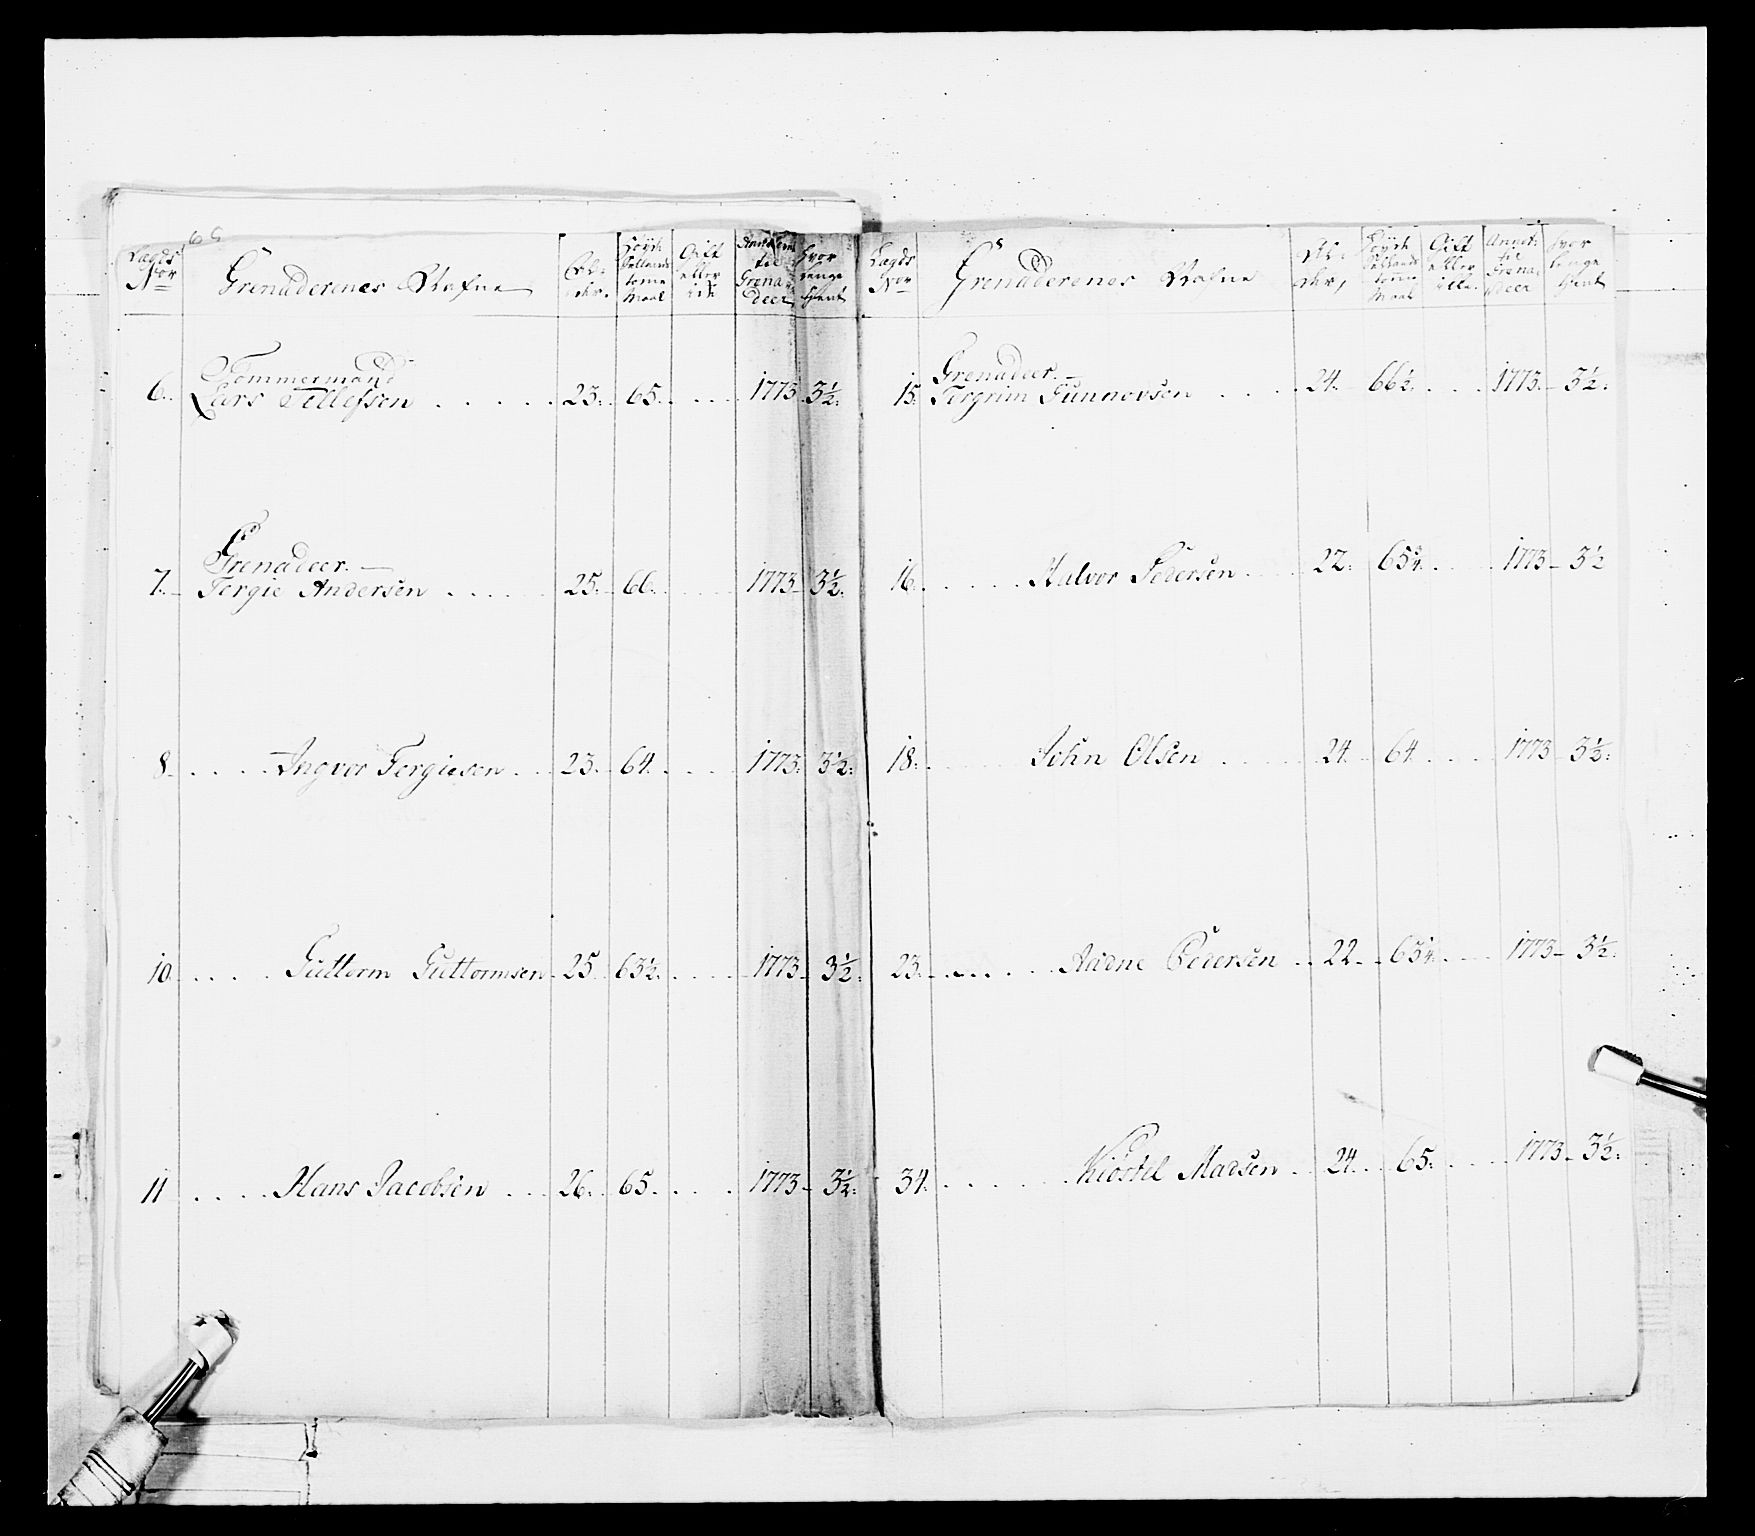 Lægds Nor Grenaderenes Nafne Al- der. Høyde Sællands tomme Maal Gift eller ide Antagen til Grena- deer hvor lenge tient
Tømmermand
6. Lars Tellefsen 23. 65. 1773 3½.
Grenadeer.
7. Tergie Andersen 25. 66. 1773 3½.
8. Ingvor Tergiesen 23. 64. 1773. 3½.
10. Guttorm Guttormsen 25. 63½. 1773 3½.
11 Hans Jacobsen 26. 65. 1773 3½.
Lægds Nor Grenaderenes Nafne Al- der, Høyde Sællands tome Maal Gift eller Annet: til Grena- deer hvor lenge tient
Grenadeer.
15. Tergrim Gunnovsen 24. 66½. 1773. 3½.
16. Halvor Pedersen 22. 1773 3½
18. John Olsen 24. 64. 1773 3½.
23. Aadne Pedersen 22 1773 3½.
34. Kiøstel Madsen 24. 65. 1773 3½.